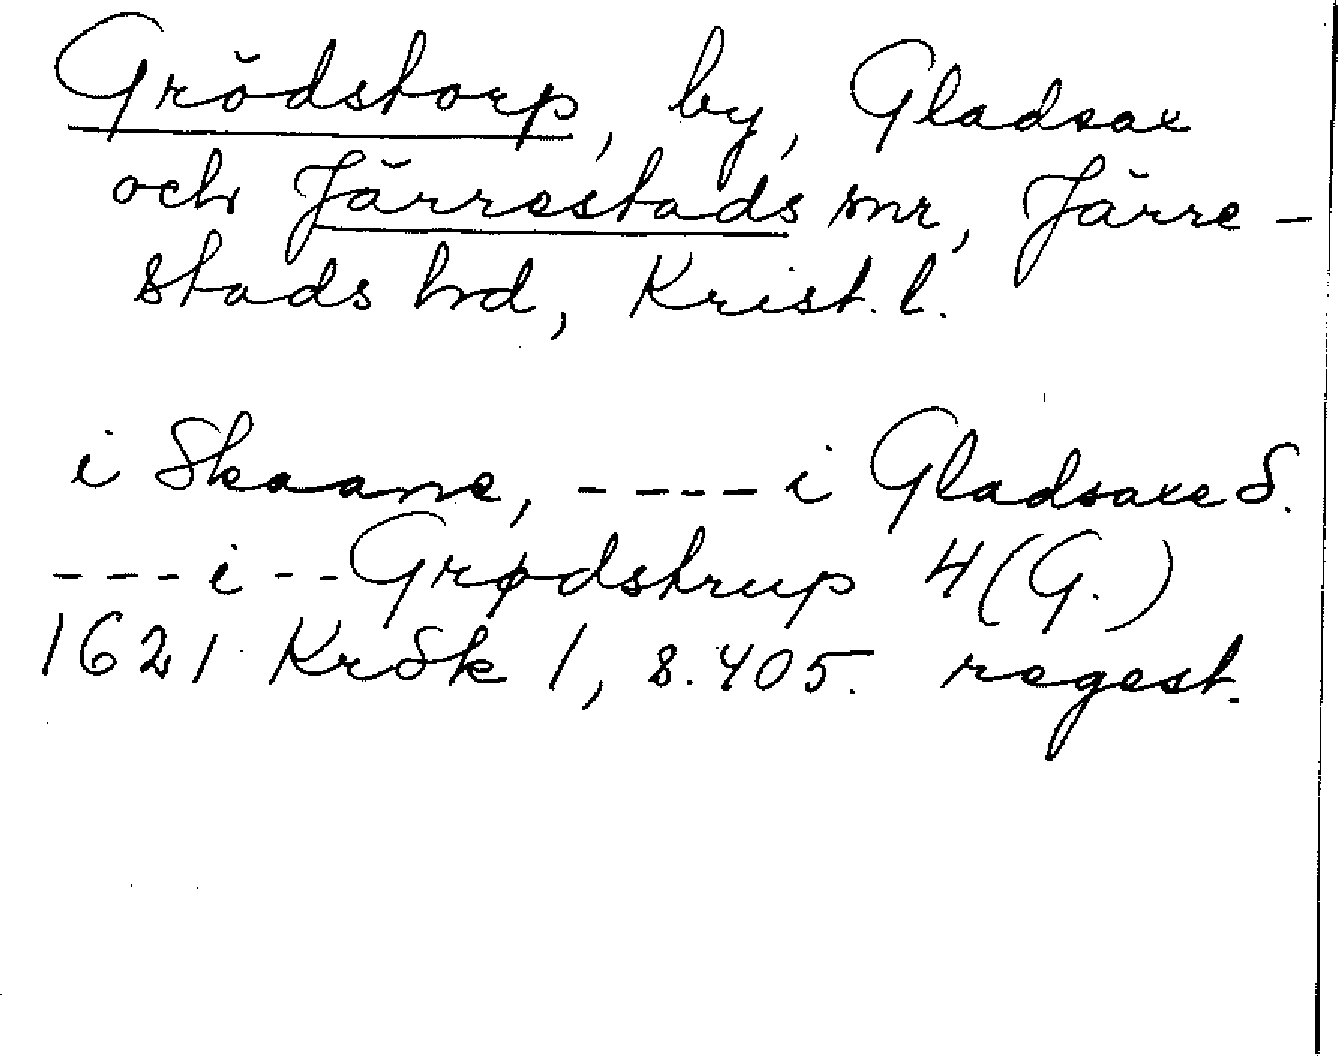 Grödstorp, by, Gladsax
och Järrestads snr, Järre-
stads hd, Krist. l.
i Skaane, ---- i Gladsaxe S.
--- i -- Grødstrup 4 (G.)
1621 KrSk 1, s. 405. regest.